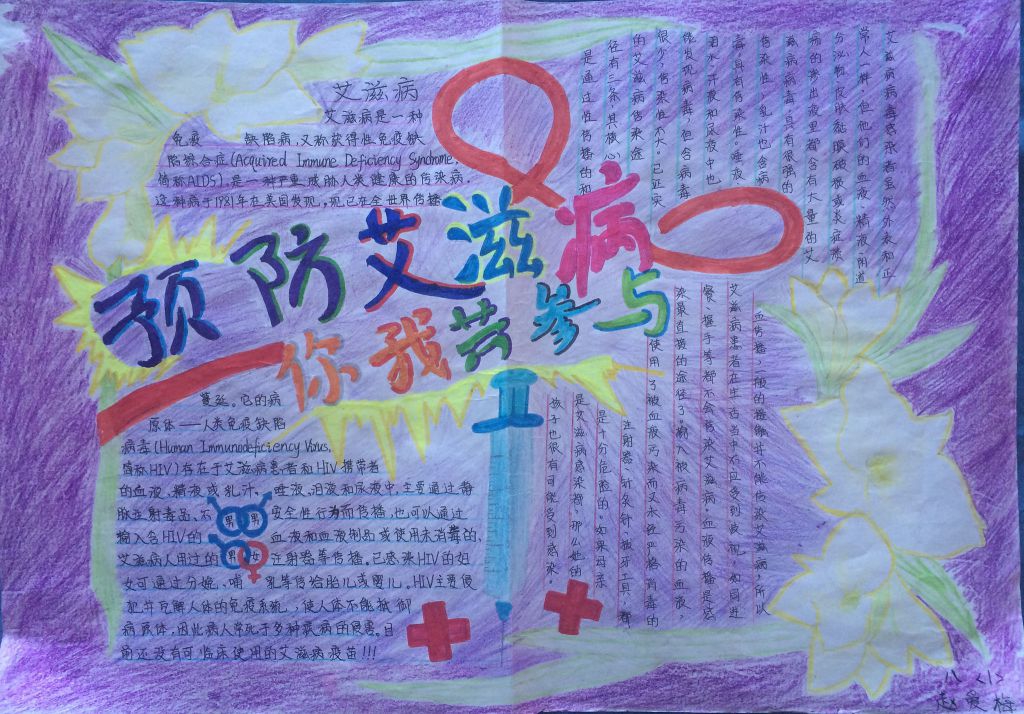 艾滋病
艾滋病是一种
免疫 缺陷病,又称获得性免疫缺
陷综合症(Acquired Immune Deficiency Syndrome,
简称AIDS),是一种严重威胁人类健康的传染病.
这种病于1981年在美国发现,现已在全世界传播
预防艾滋病
你我共参与
蔓延。它的病
原体——人类免疫缺陷
病毒(Human Immunodeficiency Virus,
简称HIV)存在于艾滋病患者和HIV携带者
的血液、精液或乳汁、唾液、泪液和尿液中,主要通过静
脉注射毒品、不 安全性行为而传播,也可以通过
输入含HIV的 血液和血液制品或使用未消毒的、
艾滋病人用过的 注射器等传播。已感染HIV的妇
女可通过分娩、哺 乳等传给胎儿或婴儿。HIV主要侵
犯并瓦解人体的免疫系统,使人体不能抵御
病原体,因此病人常死于多种疾病的侵害。目
前还没有可临床使用的艾滋病疫苗!!!
男 男
男 女
艾滋病病毒感染者虽然外表和正
常人一样,但他们的血液、精液、阴道
分泌物、皮肤黏膜破损或炎症溃
病的渗出液里都含有大量的艾
滋病病毒,具有很强的
传染性;乳汁也含病
毒,具有传染性。唾液、
泪水、汗液和尿液中也
能发现病毒,但含病毒
很少,传染性不大。已证实
的艾滋病传染途
径有三条,其核心
是通过性传播的和
血传播,一般的接触并不能传染艾滋病,所以
艾滋病患者在生活当中不应受到歧视,如同进
餐、握手等都不会传染艾滋病。血液传播是感
染最直接的途径了。输入被病毒污染的血液,
使用了被血液污染而又未经严格消毒的
注射器、针灸针、拔牙工具,都
是十分危险的。如果母亲
是艾滋病感染者,那么她的
孩子也很有可能受到感染。
八<1>
赵爱梅